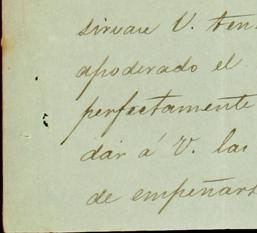 sirvase V. ten
apoderado el
perfectamente
dar á V. las
de empeñars